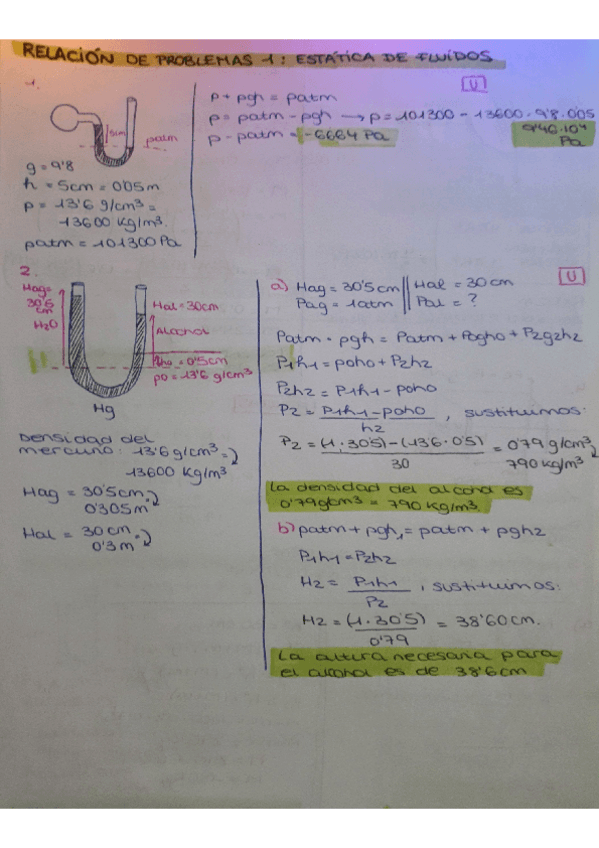 RELACIÓN DE PROBLEMAS 1: ESTÁTICA DE FLUÍDOS
1.
5cm
patm
g = 9'8
h = 5cm = 0'05m
ρ = 13'6 g/cm³ =
13600 Kg/m³.
patm = 101300 Pa
U
p + ρgh = patm
p = patm - ρgh → p = 101300 - 13600 · 9'8 · 005
p - patm = -6664 Pa
9'46·10⁴
Pa
2.
Hag =
30'5
cm
H2O
Hal = 30cm
Alcohol
ρ0 = 13'6 g/cm³
Hg
Densidad del
mercurio: 13'6 g/cm³ =
13600 Kg/m³
Hag = 30'5cm
0'305m
Hal = 30cm
0'3m
U
a) Hag = 30'5cm || Hal = 30cm
Pag = 1atm || Pal = ?
Patm + ρgh = Patm + ρ0gh0 + ρ2g2h2
ρ1h1 = ρ0h0 + ρ2h2
ρ2h2 = ρ1h1 - ρ0h0
ρ2 = ρ1h1 - ρ0h0 / h2 , sustituimos:
ρ2 = (1·30'5) - (13'6·0'5) / 30 = 0'79 g/cm³
790 Kg/m³
La densidad del alcohol es
0'79 g/cm³ = 790 Kg/m³.
b) patm + ρgh1 = patm + ρgh2
ρ1h1 = ρ2h2
H2 = ρ1h1 / ρ2 , sustituimos:
H2 = (1·30'5) / 0'79 = 38'60cm.
La altura necesaria para
el alcohol es de 38'6cm